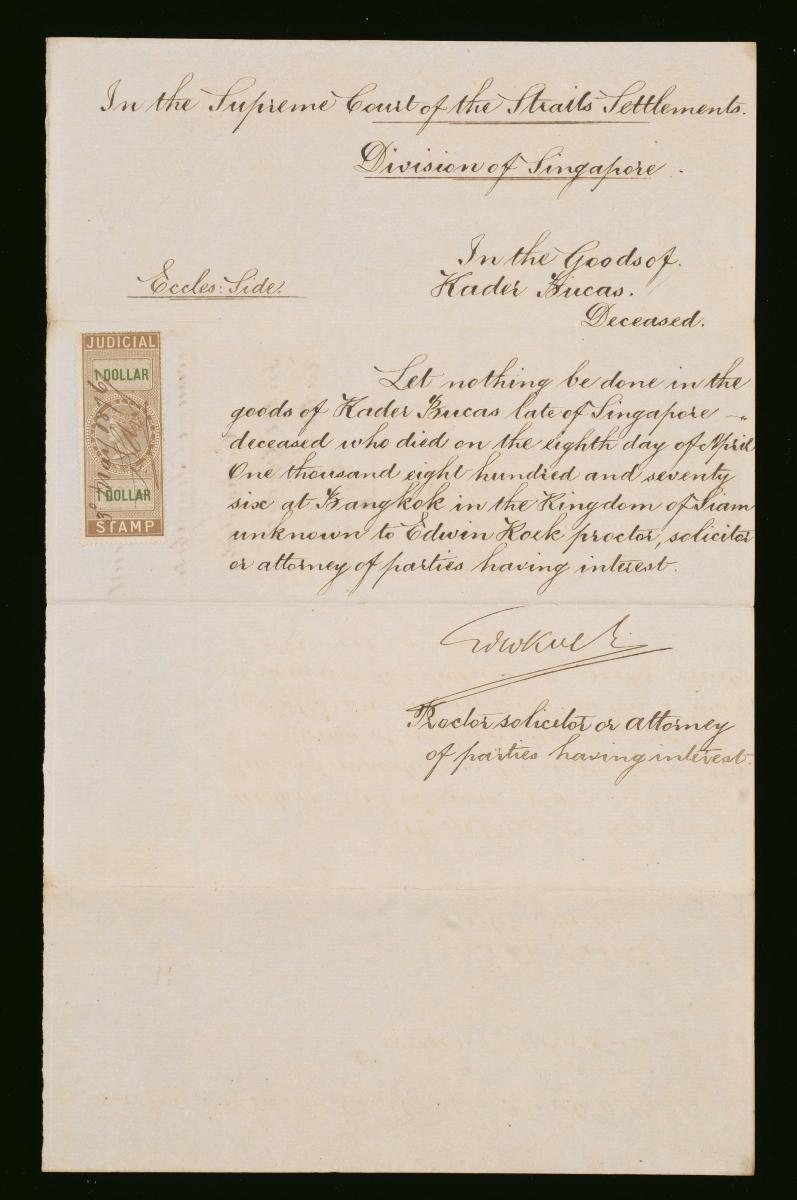 In the Supreme Court of the Straits Settlements.
Division of Singapore.
In the Goods of.
Eccles: Side.
Kader Bucas.
Deceased.
JUDICIAL
1 DOLLAR
1 DOLLAR
STAMP
Let nothing be done in the
goods of Kader Bucas late of Singapore –
deceased who died on the eighth day of April
One thousand eight hundred and seventy
six at Bangkok in the Kingdom of Siam
unknown to Edwin Koek proctor, solicitor
or attorney of parties having interest.
EdwKoek
Proctor solicitor or attorney
of parties having interest.